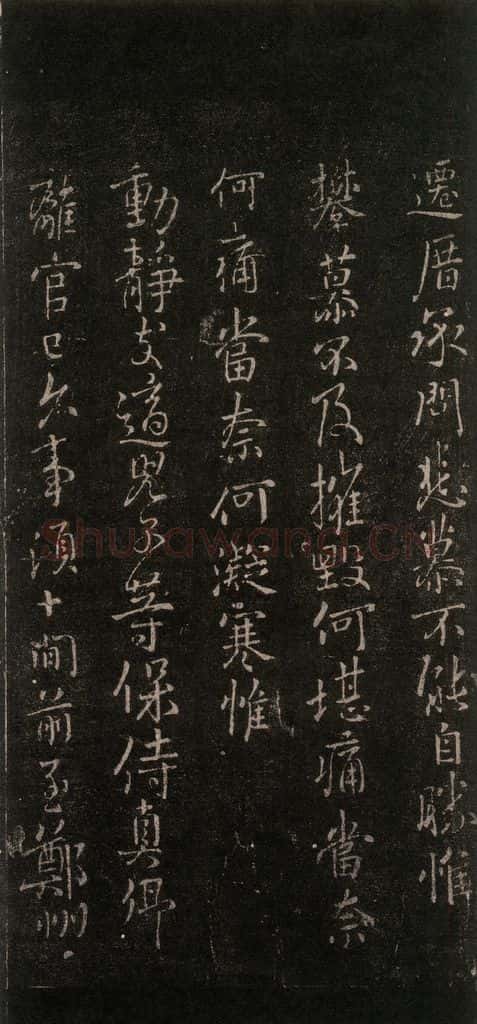 遷厝承問悲慕不能自勝惟
攀慕不及摧毀何堪痛當奈
何痛當奈何凝寒惟
動靜支適兒子等保侍真卿
離官已久事須十間前至鄭州
Shufawang.CN